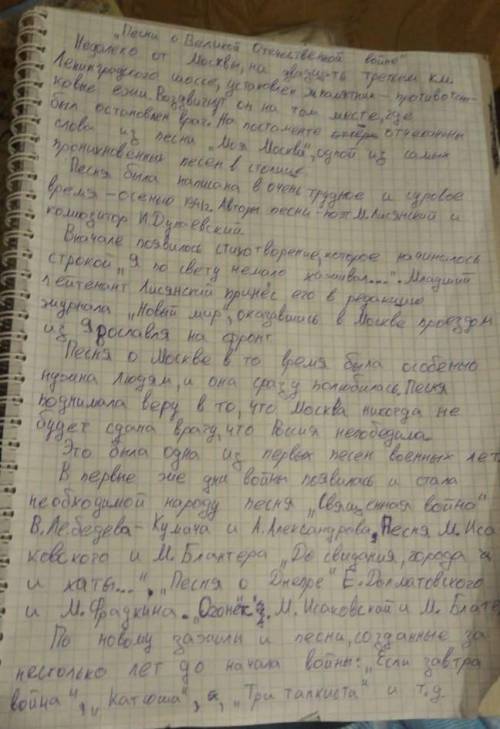 „Песни о Великой Отечественной войне"
Недалеко от Москвы, на двадцать третьем км.
Ленинградского шоссе, установлен памятник – противотан-
ковые ежи. Воздвигнут он на том месте, где
был остановлен враг. На постаменте отчеканены
слова из песни „Моя Москва", одной из самых
проникновенных песен о столице.
Песня была написана в очень трудное и суровое
время – осенью 1941г. Авторы песни – поэт М. Лисянский и
композитор И. Дунаевский.
Вначале появилось стихотворение, которое начиналось
строкой „Я по свету немало хаживал...". Младший
лейтенант Лисянский принёс его в редакцию
журнала „Новый мир", оказавшись в Москве проездом
из Ярославля на фронт.
Песня о Москве в то время была особенно
нужна людям, и она сразу полюбилась. Песня
поднимала веру в то, что Москва никогда не
будет сдана врагу, что Россия непобедима.
Это была одна из первых песен военных лет
В первые же дни войны появилась и стала
необходимой народу песня „Священная война"
В. Лебедева-Кумача и А. Александрова, Песня М. Иса
ковского и М. Блантера „До свидания, города
и хаты...", „Песня о Днепре" Е. Долматовского
и М. Фрадкина. „Огонёк" М. Исаковский и М. Блате
По новому зажили и песни, созданные за
несколько лет до начала войны: „Если завтра
война", „Катюша", „Три танкиста" и т.д